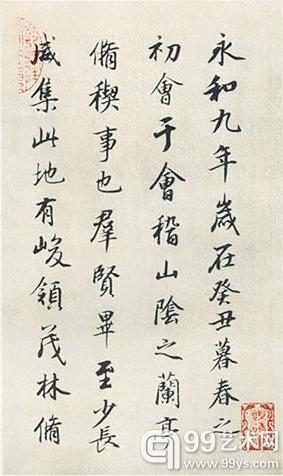 永和九年歲在癸丑暮春之
初會于會稽山陰之蘭亭
脩稧事也羣賢畢至少長
咸集此地有峻領茂林脩
99艺术网
www.99ys.com